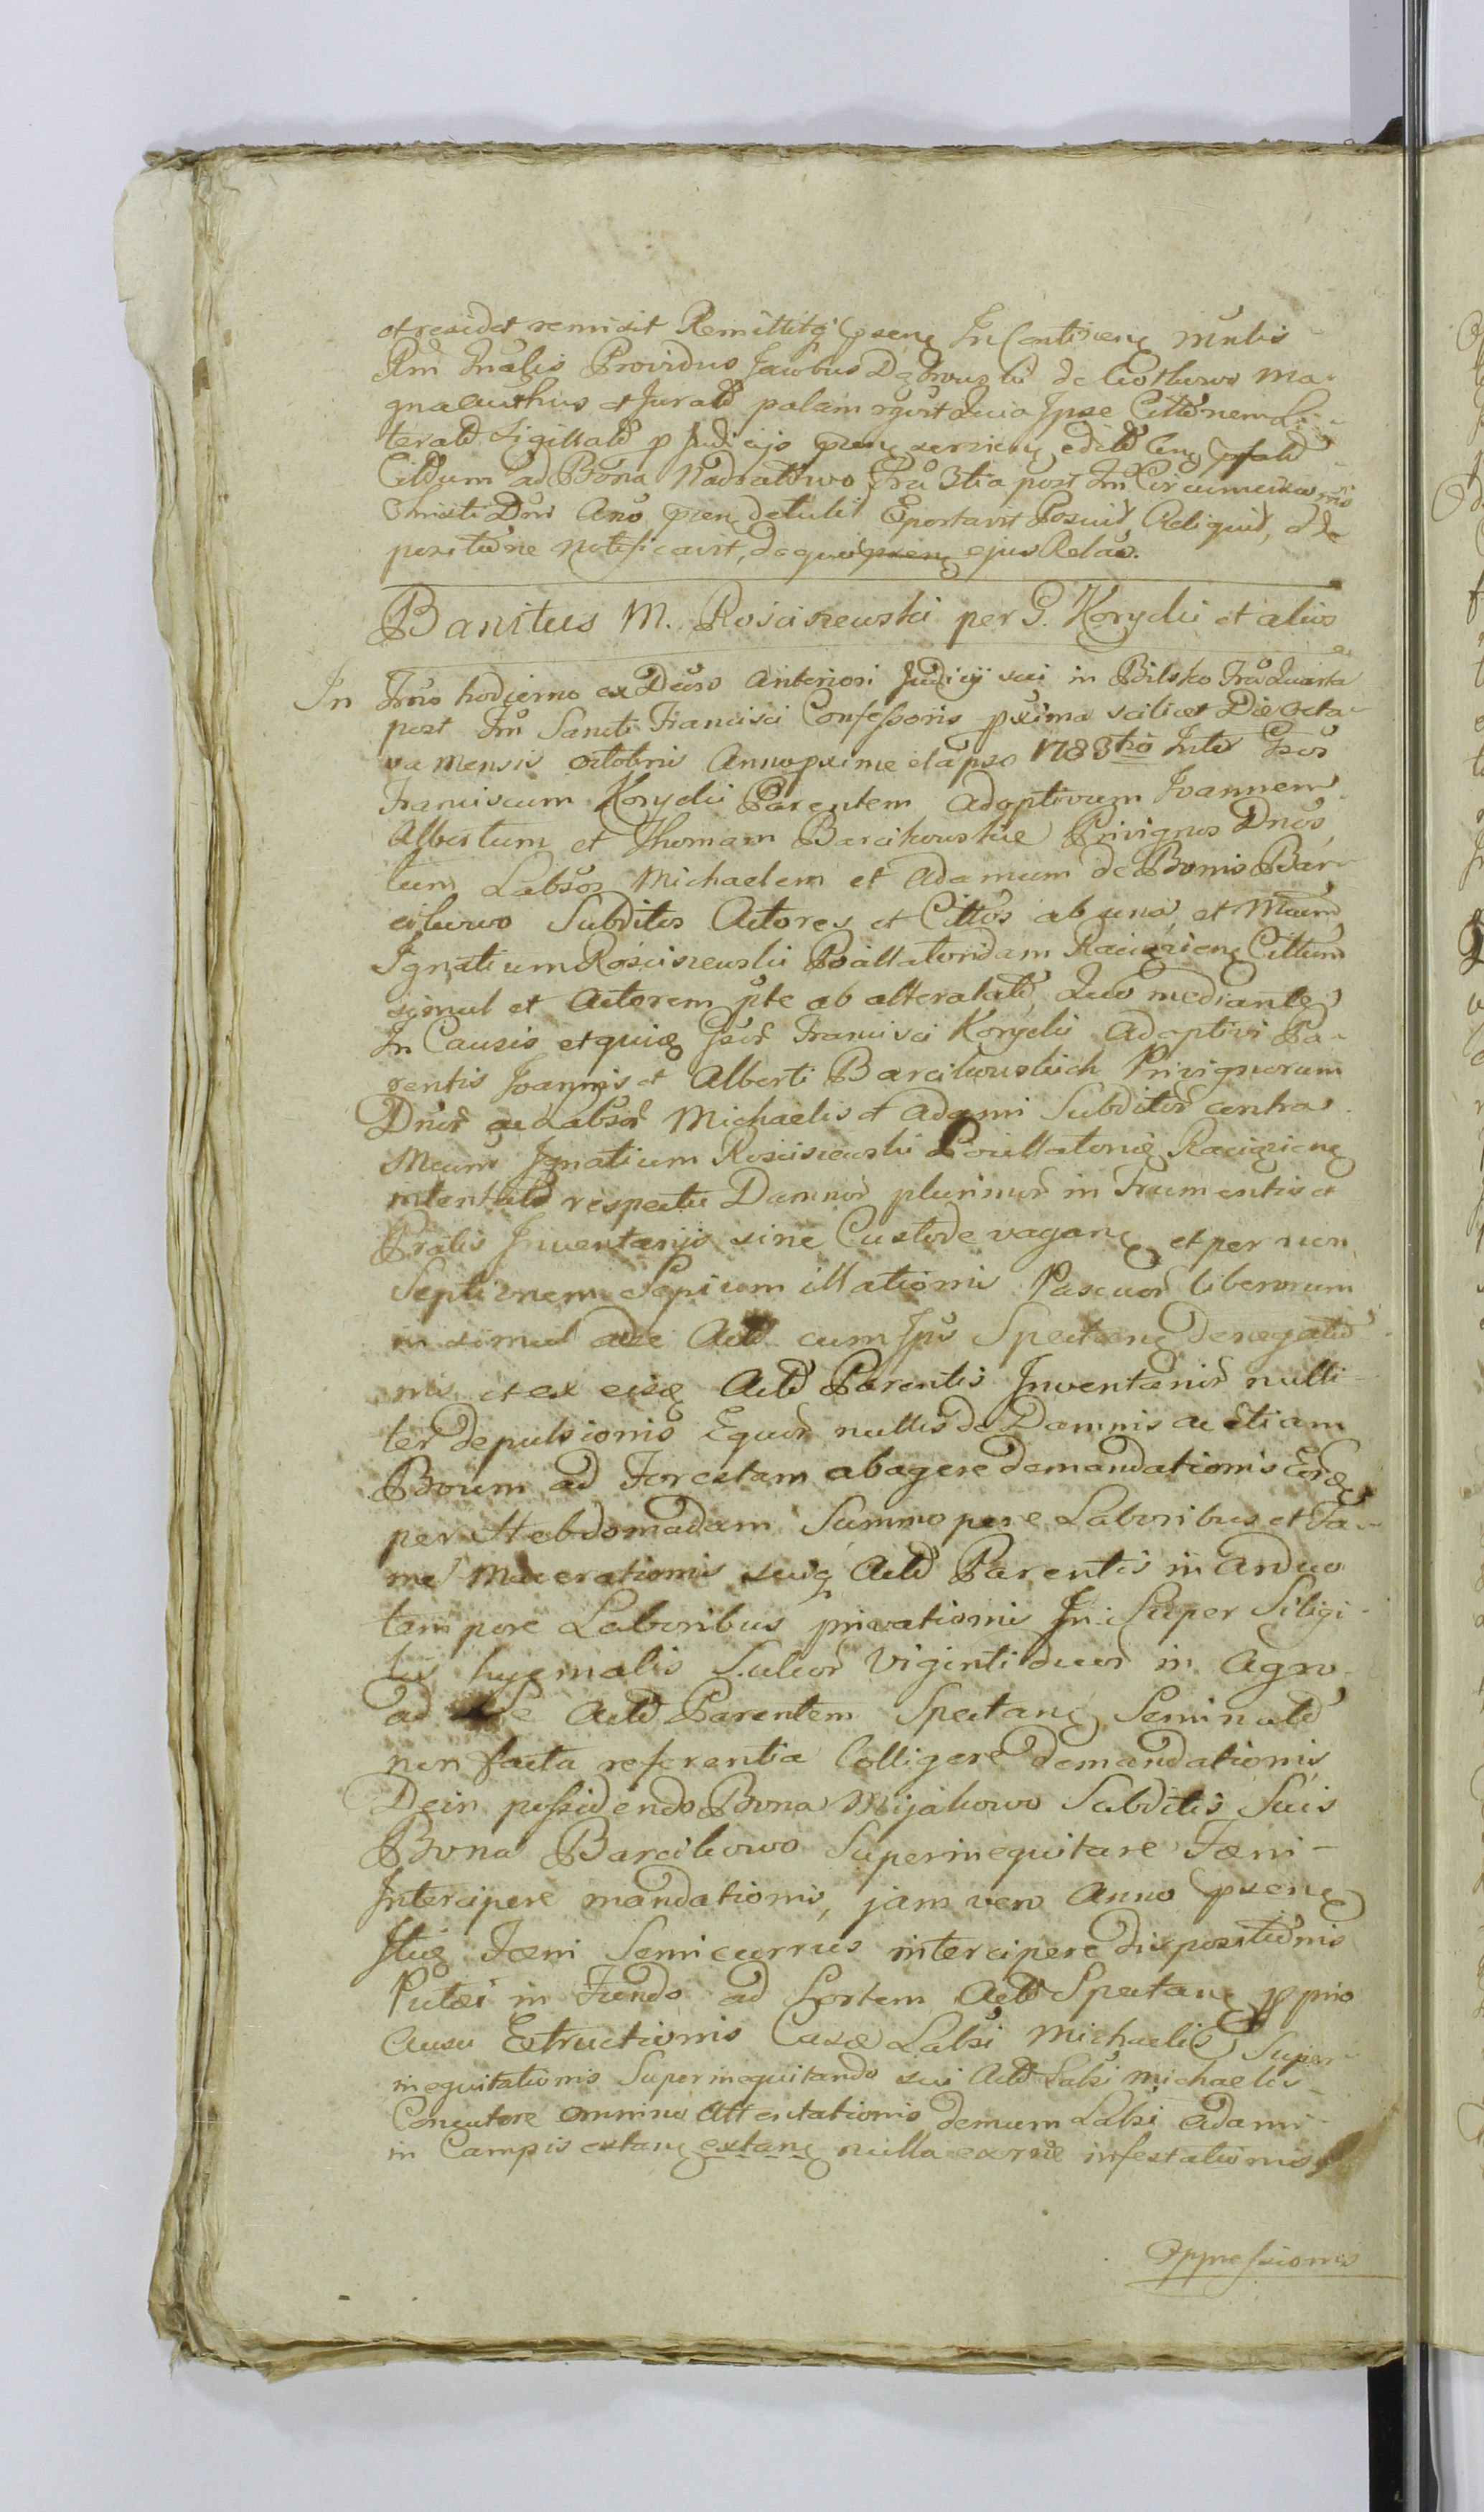 et residet remisit Remittitq̃ pñeñ In Contineñ
Providus Jacobus Dąbrowski de
et Jurat̃ palam Ipse Citt̃õnem Li-
terat̃ Sigillat̃ p Judicijo pñeñ
Citt̃um ad Bona Nadratowo Fria 3tia post Fm̃ Circumcisionis
Christi Dñi Anõ pñeñ detulit Eportavit Posuit Reliquit, et de
positione notificavit, de quo pñeñ ejus Relaõ.
Banitus M. Rościszewski per G. Korycki et alios
In Trño hodierno ex Decso Anteriori Judicij sui in Bilsko Fria Quarta
post Fm̃ Sancti Francisci Confessoris pxima scilicet Die Octa-
va Mensis Octobris Anno pxime elapso 1783tio Inter Gsos
Franciscum Korycki Parentem Adoptivum Ioannem
Albertum et Thomam Barcikowskie Privignos Dños,
tum Labsos Michaelem et Adamum de Bonis Bar-
cikowo Subditos Actores et Cittõs ab una et Mcum
Ignatium Rościszewski Pocillatoridam Raciązieñ Cittum
simul et Actorem pte ab altera Quo mediante
In Causis Gsor̃ Francisci Korycki Adoptivi Pa-
rentis Joannis et Alberti Barcikowskich Privignorum
Dñor̃ ac Labsor̃ Michaelis et Adami Subditor̃ contra
Mcum Ignatium Rościszewski Pocillatorid̃ Raciązieñ
intentat̃ respectu Damnor̃ plurimor̃ in Frumentis et
Pratis Inventarijs sine Custode vagañ et per non
Septionem Sepium illationis Pascuor̃ liberorum
in simul Act̃ cum Ipis Spectañ denegatio-
nis et ex eisq̃ Act̃ Parentis Inventarior̃ nulli-
ter depulsionis Equor̃ nullis de Damnis ac etiam
Boum ad Forestam abagere demandationis Eorq̃
per Hebdomadam Summopere Laboribus et Fa-
me Macerationis Act̃ Parentis in arduo
tempore Laboribus privationis In Super Siligi-
nis hyemalis Sulcor̃ Viginti duor̃ in Agro
ad Se Act̃ Parentem Spectañ Seminat̃
non facta referentia Colligere demandationis,
Dein possidendo Bona Mijakowo Subditis Suis
Bona Barcikowo Superinequitare Fæni
Intercipere mandationis, jam vero Anno pñeñ
Fæni Semicurrus intercipere dispositionis
Putei in Fundo ad Sortem Act̃ Spectañ pprio
Ausu Extructionis Casæ Labsi Michaelis Super-
inequitationis Superinequitando sui Act̃ Labsi Michaelis
Concutere omnino Attentationis demum Labsi Adami
in Campis extañ extañ nulla infestationis
Oppressionis